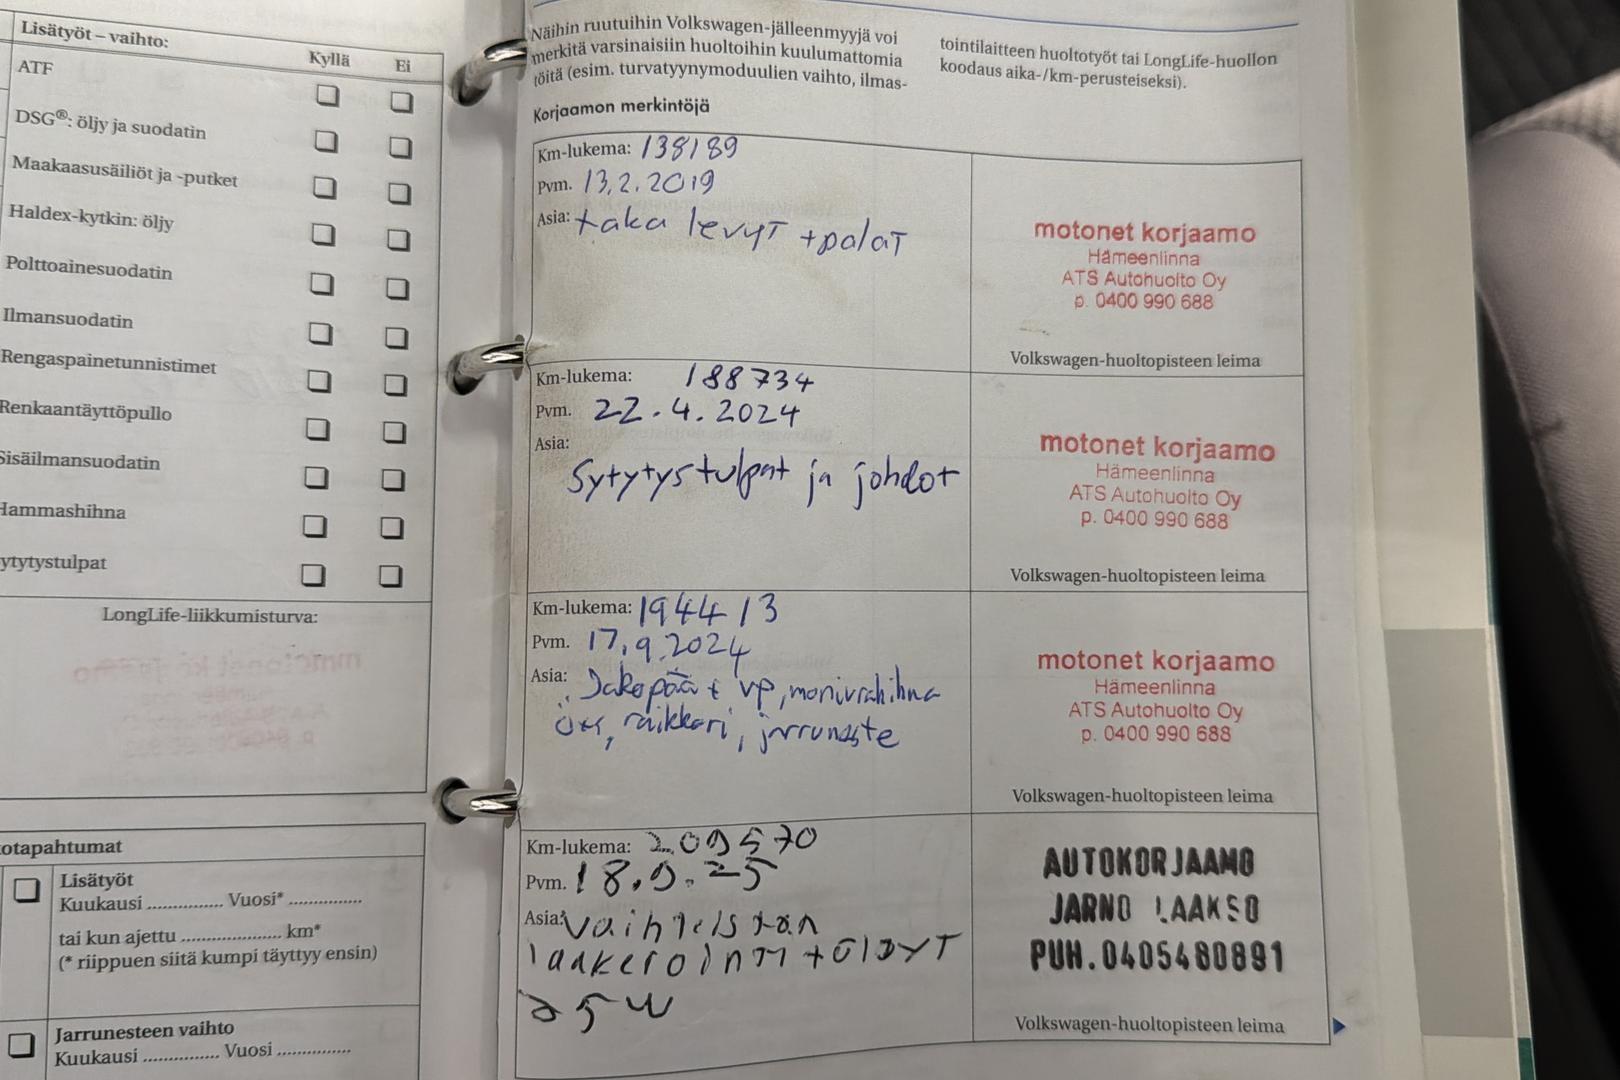 Lisätyöt – vaihto:
Kyllä
Ei
ATF
DSG®: öljy ja suodatin
Maakaasusäiliöt ja -putket
Haldex-kytkin: öljy
Polttoainesuodatin
Ilmansuodatin
Rengaspainetunnistimet
Renkaantäyttöpullo
Sisäilmansuodatin
Hammashihna
ytytystulpat
LongLife-liikkumisturva:
otapahtumat
Lisätyöt
Kuukausi ............... Vuosi* ...............
tai kun ajettu .................... km*
(* riippuen siitä kumpi täyttyy ensin)
Jarrunesteen vaihto
Kuukausi ............... Vuosi ...............
Näihin ruutuihin Volkswagen-jälleenmyyjä voi
merkitä varsinaisiin huoltoihin kuulumattomia
töitä (esim. turvatyynymoduulien vaihto, ilmas-
tointilaitteen huoltotyöt tai LongLife-huollon
koodaus aika-/km-perusteiseksi).
Korjaamon merkintöjä
Km-lukema: 138189
Pvm. 13.2.2019
Asia: taka levyT +palaT
motonet korjaamo
Hämeenlinna
ATS Autohuolto Oy
p. 0400 990 688
Volkswagen-huoltopisteen leima
Km-lukema: 188734
Pvm. 22.4.2024
Asia:
Sytytystulpat ja johdot
motonet korjaamo
Hämeenlinna
ATS Autohuolto Oy
p. 0400 990 688
Volkswagen-huoltopisteen leima
Km-lukema: 194413
Pvm. 17.9.2024
Asia: Jakopää + vp, moniurahihna
raikkari, jarruneste
motonet korjaamo
Hämeenlinna
ATS Autohuolto Oy
p. 0400 990 688
Volkswagen-huoltopisteen leima
Km-lukema: 209570
Pvm. 18.9.25
Asia: Vaihteistan
laakerointi + ÖlJyT
75W
AUTOKORJAAMO
JARNO LAAKSO
PUH.0405480891
Volkswagen-huoltopisteen leima